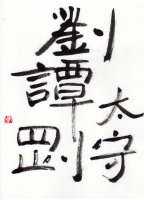 太守
劉譚剛